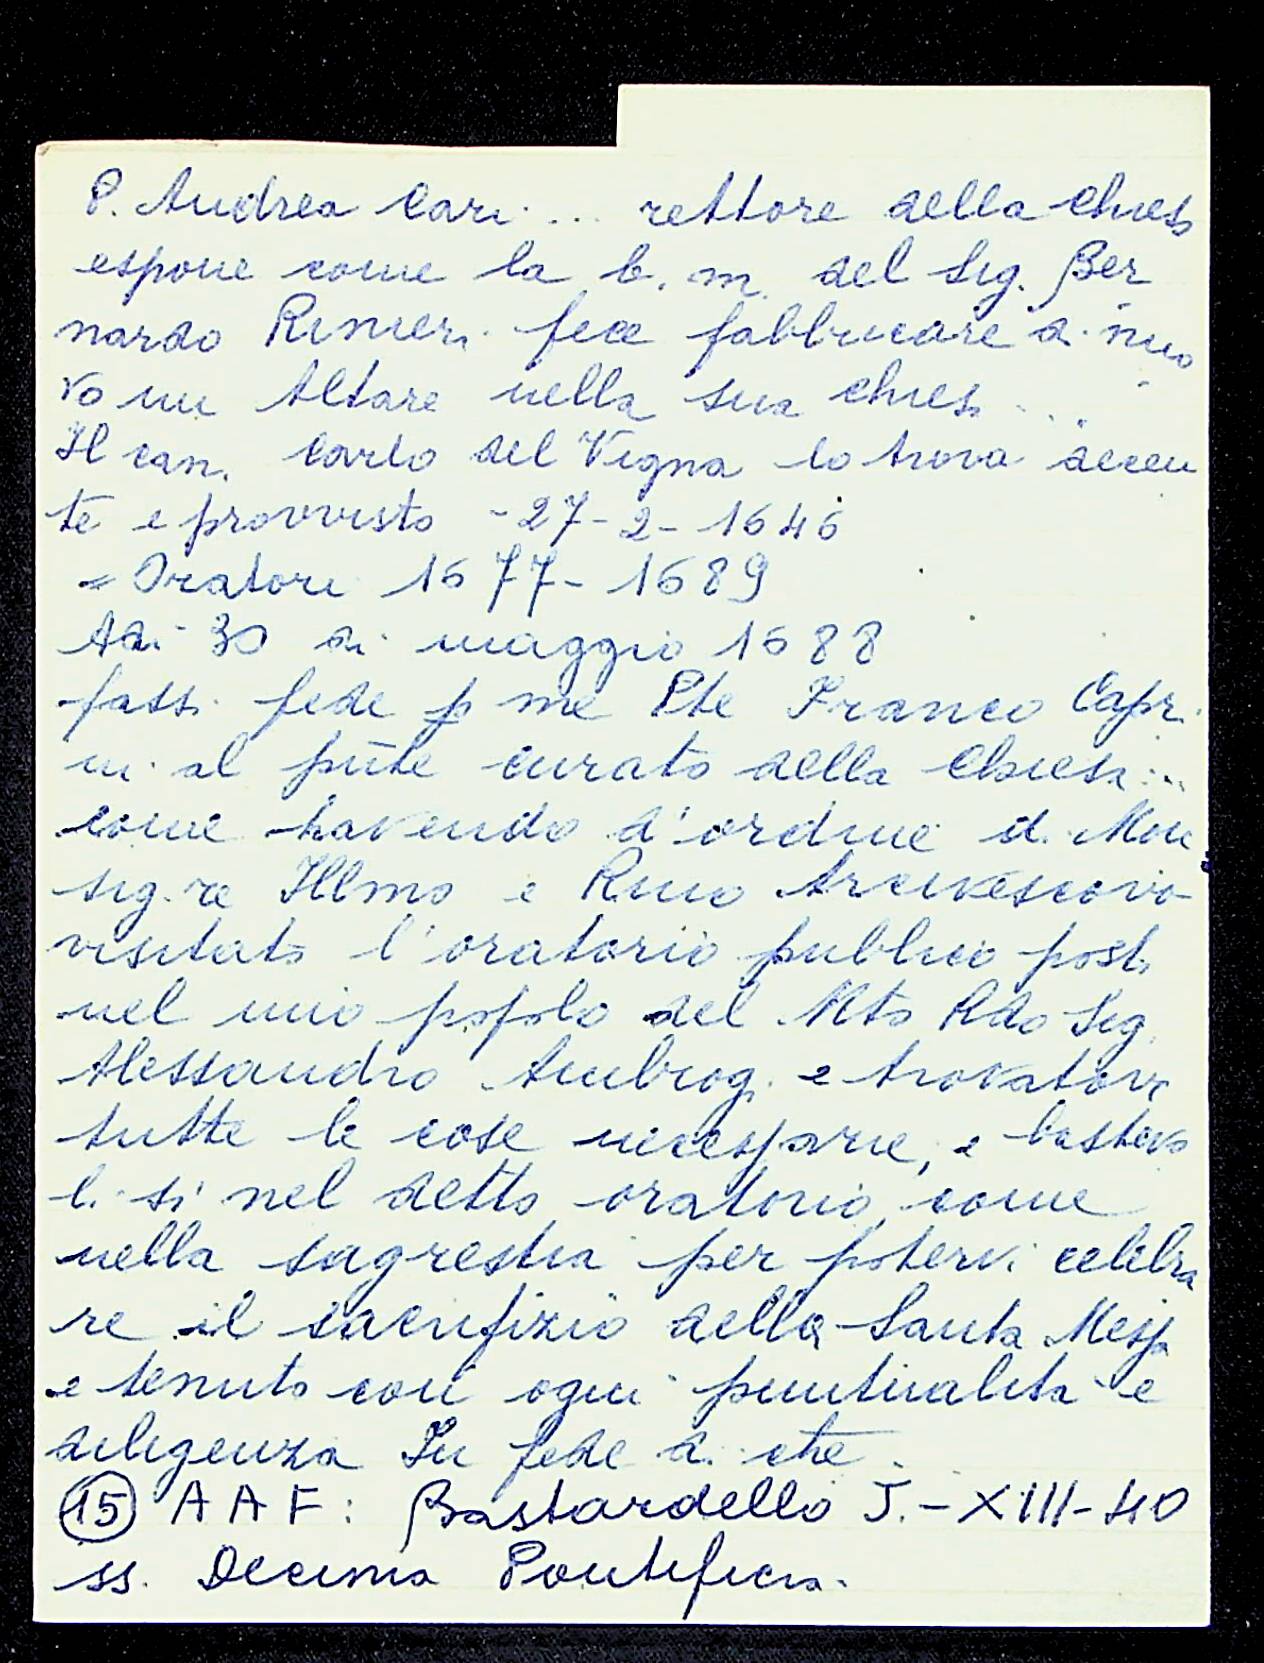 P. Andrea Cari... rettore della Chiesa
espone come la b. m. del Sig. Ber
nardo Rinieri fece fabbricare di nuo
vo un Altare nella sua chiesa...
Il can. Carlo del Vigna lo trova decen
te e provvisto - 27-2-1646
= Oratori 1677-1689
Adi 30 di maggio 1688
fassi fede p me Pte Franco Capri
ni al pnte curato della Chiesa...
come havendo d'ordine di Mon
sig.re Illmo e Rmo Arcivescovo
visitato l'oratorio publico posto
nel mio popolo del Mto Rdo Sig.
Alessandro Ambrogi e trovatovi
tutte le cose necessarie, e bastevo
li sì nel detto oratorio, come
nella sagrestia per potervi celebra
re il sacrifizio della Santa Messa
e tenuto con ogni puntualità e
diligenza In fede di che.
(15) AAF: Bastardello J.-XIII-40
ss. Decima Pontificia.